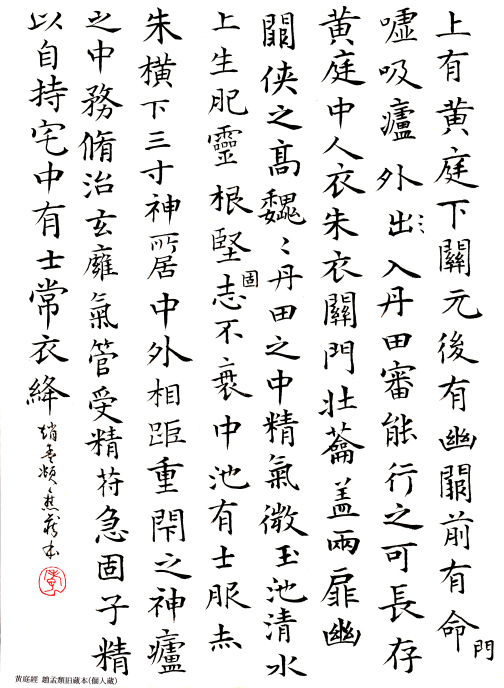 上有黄庭下關元後有幽闕前有命門
嘘吸廬外出入丹田審能行之可長存
黄庭中人衣朱衣關門壯蘥盖兩扉幽
闕侠之高巍〻丹田之中精氣微玉池清水
上生肥靈根堅固志不衰中池有士服赤
朱橫下三寸神所居中外相距重閇之神廬
之中務脩治玄廱氣管受精苻急固子精
以自持宅中有士常衣絳
趙孟頫舊蔵本
黄庭經 趙孟頫旧蔵本(個人蔵)